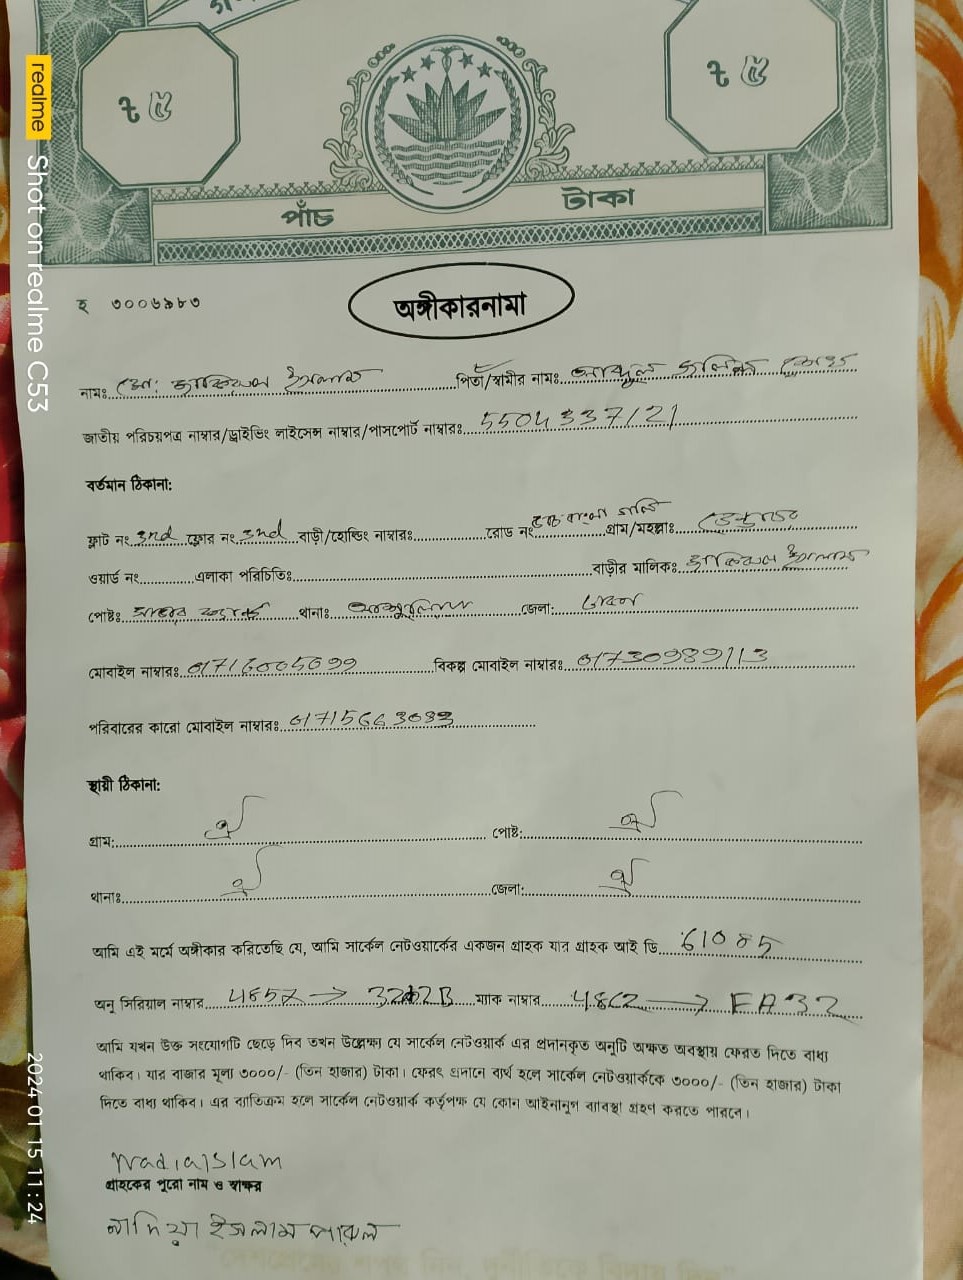 ৳ ৫
৳ ৫
পাঁচ টাকা
হ ৩০০৬৯৮৩
অঙ্গীকারনামা
নামঃ মোঃ জাকিরুল ইসলাম পিতা/স্বামীর নামঃ আব্দুল মালিক
জাতীয় পরিচয়পত্র নাম্বার/ড্রাইভিং লাইসেন্স নাম্বার/পাসপোর্ট নাম্বারঃ 5504337121
বর্তমান ঠিকানা:
ফ্লাট নং 3nd ফ্লোর নং 3nd বাড়ী/হোল্ডিং নাম্বারঃ রোড নং গলি গ্রাম/মহল্লাঃ
ওয়ার্ড নং এলাকা পরিচিতিঃ বাড়ীর মালিকঃ জাকিরুল ইসলাম
পোষ্টঃ থানাঃ আশুলিয়া জেলা: ঢাকা
মোবাইল নাম্বারঃ 01716005099 বিকল্প মোবাইল নাম্বারঃ 01730989113
পরিবারের কারো মোবাইল নাম্বারঃ 01715663033
স্থায়ী ঠিকানা:
গ্রাম: ঐ পোষ্ট: ঐ
থানাঃ ঐ জেলা: ঐ
আমি এই মর্মে অঙ্গীকার করিতেছি যে, আমি সার্কেল নেটওয়ার্কের একজন গ্রাহক যার গ্রাহক আই ডি 61085
অনু সিরিয়াল নাম্বার 4857X → ম্যাক নাম্বার 48C2 → FA32
আমি যখন উক্ত সংযোগটি ছেড়ে দিব তখন উল্লেক্ষ্য যে সার্কেল নেটওয়ার্ক এর প্রদানকৃত অনুটি অক্ষত অবস্থায় ফেরত দিতে বাধ্য
থাকিব। যার বাজার মূল্য ৩০০০/- (তিন হাজার) টাকা। ফেরৎ প্রদানে ব্যর্থ হলে সার্কেল নেটওয়ার্ককে ৩০০০/- (তিন হাজার) টাকা
দিতে বাধ্য থাকিব। এর ব্যতিক্রম হলে সার্কেল নেটওয়ার্ক কর্তৃপক্ষ যে কোন আইনানুগ ব্যাবস্থা গ্রহণ করতে পারবে।
Nadia Islam
গ্রাহকের পুরো নাম ও স্বাক্ষর
নাদিয়া ইসলাম পারুল
realme Shot on realme C53
2024 01 15 11:24